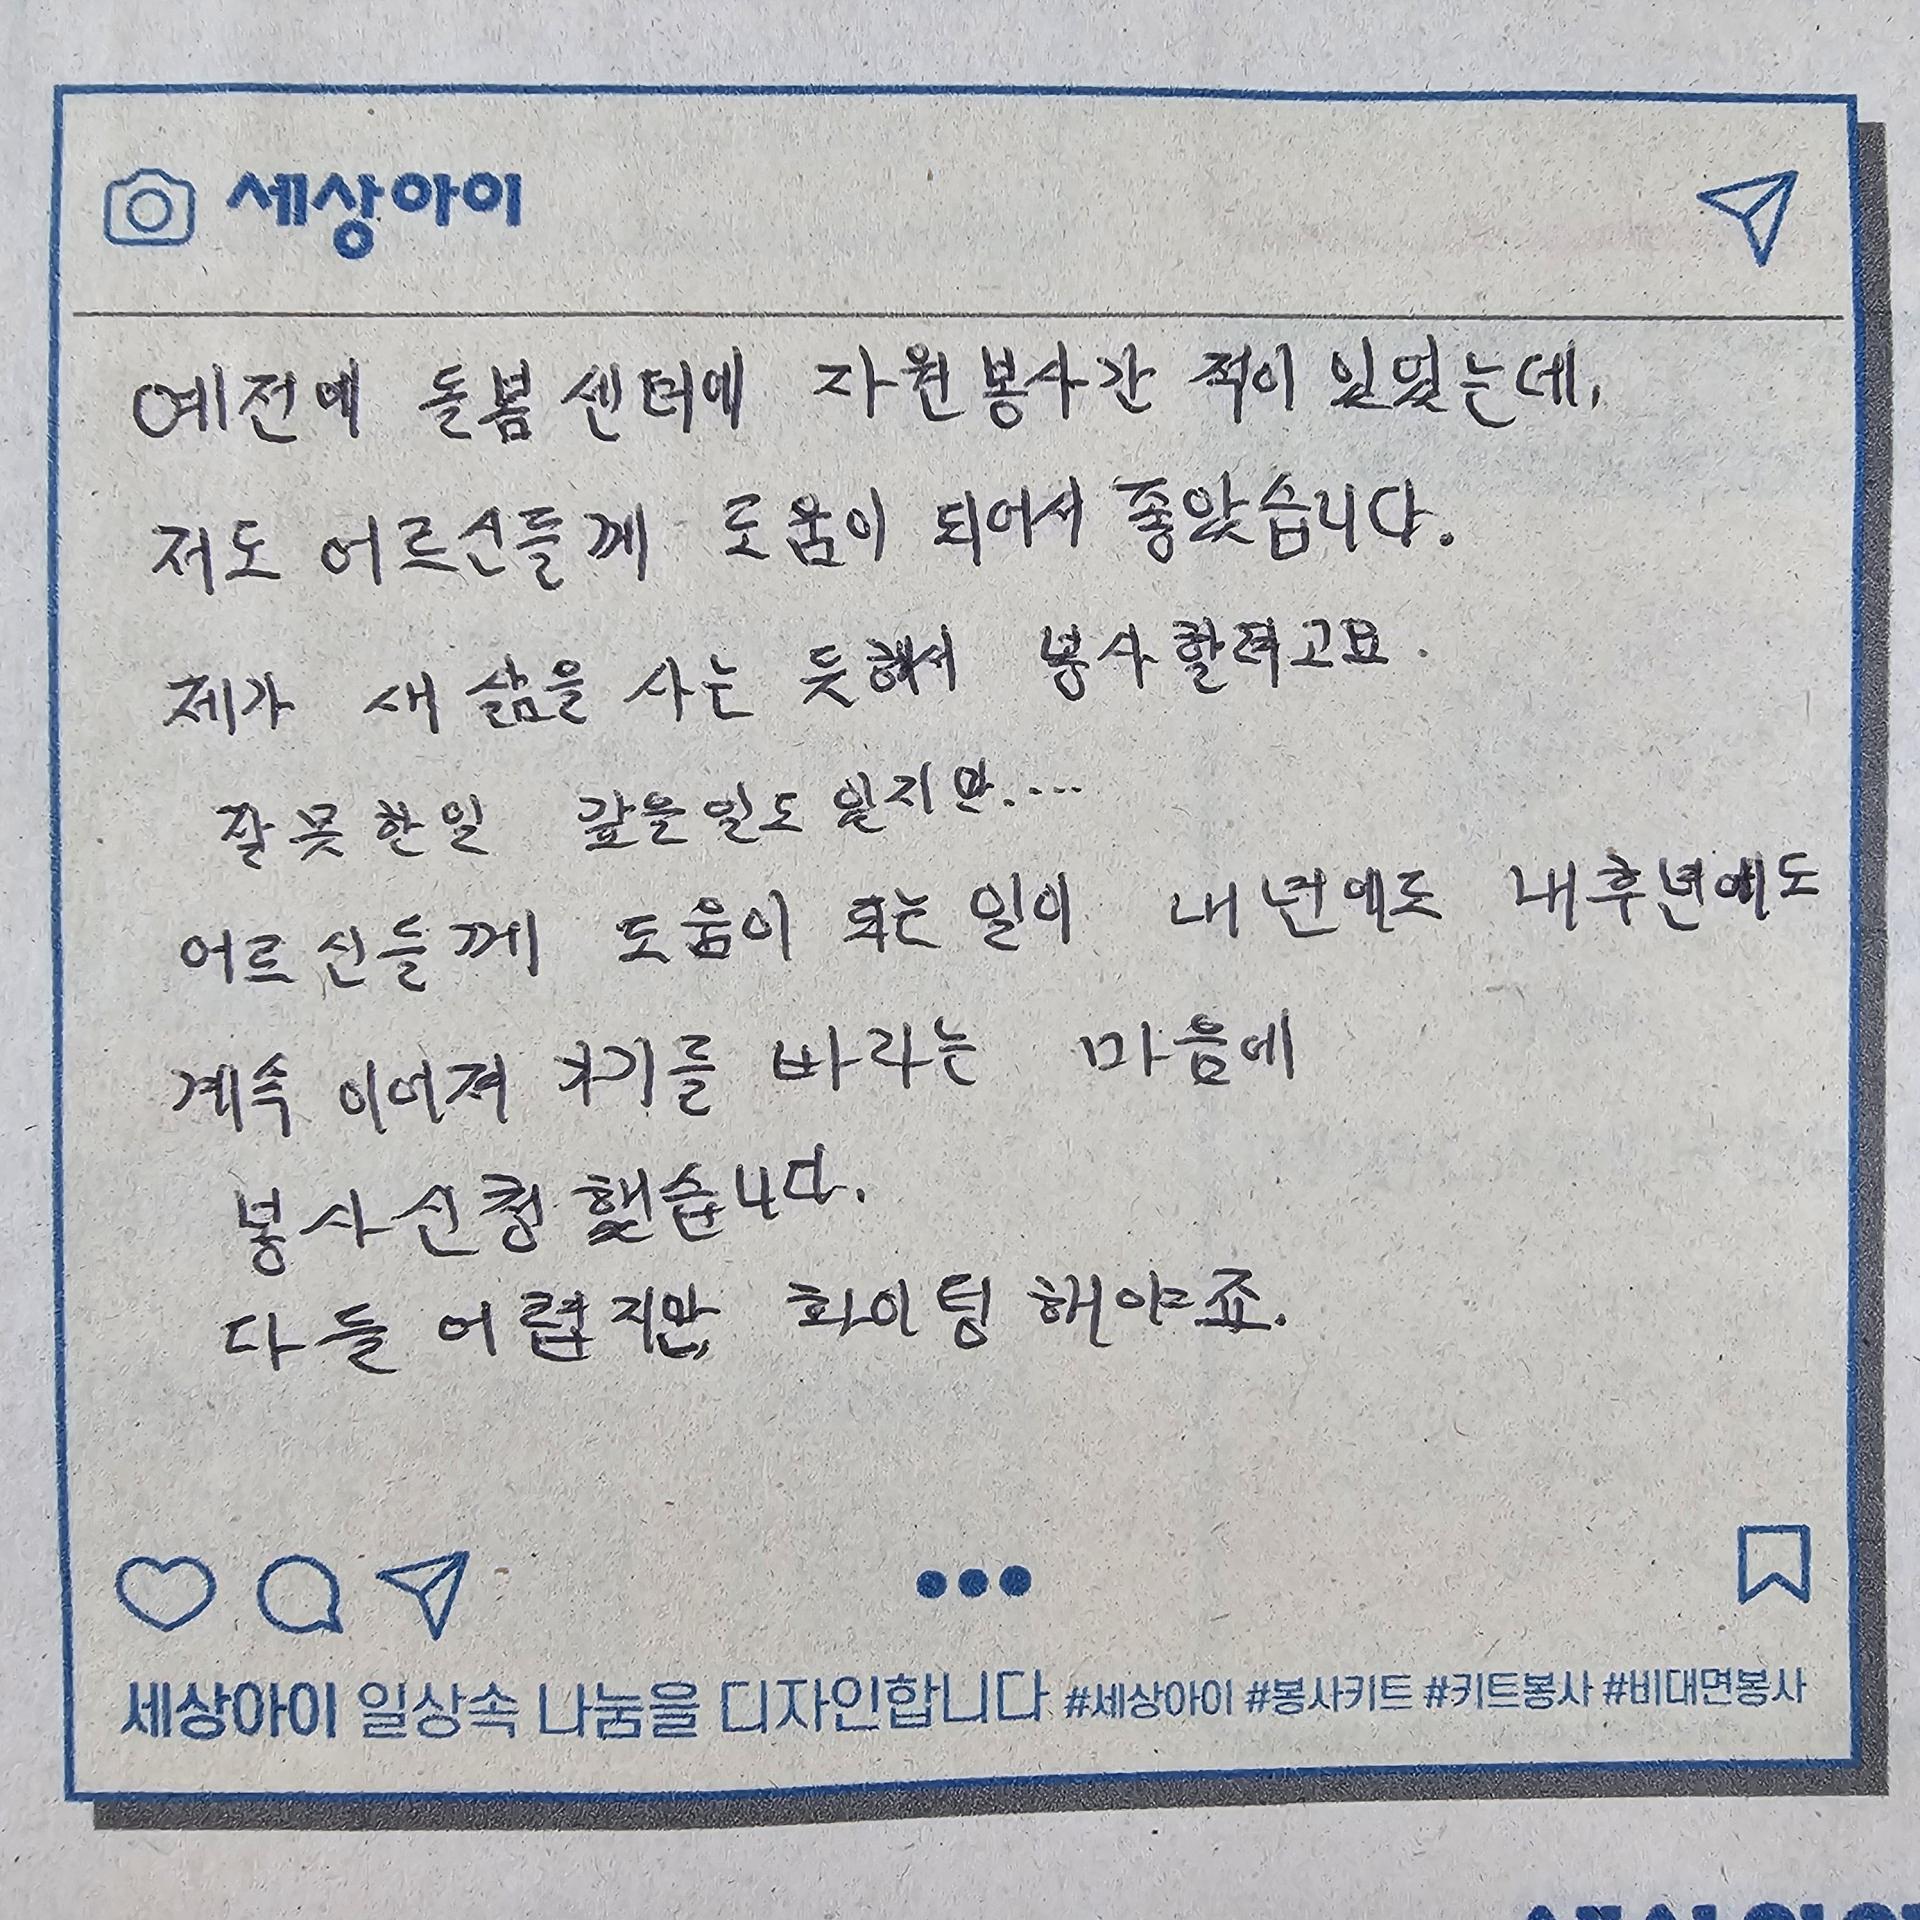 세상아이
예전에 돌봄센터에 자원봉사간 적이 있었는데,
저도 어르신들께 도움이 되어서 좋았습니다.
제가 새 삶을 사는 듯해서 봉사할려고요.
잘못한일 갚을일도 있지만....
어르신들께 도움이 되는 일이 내년에도 내후년에도
계속 이어져 가기를 바라는 마음에
봉사신청 했습니다.
다들 어렵지만, 화이팅 해야죠.
세상아이 일상속 나눔을 디자인합니다 #세상아이 #봉사키트 #키트봉사 #비대면봉사